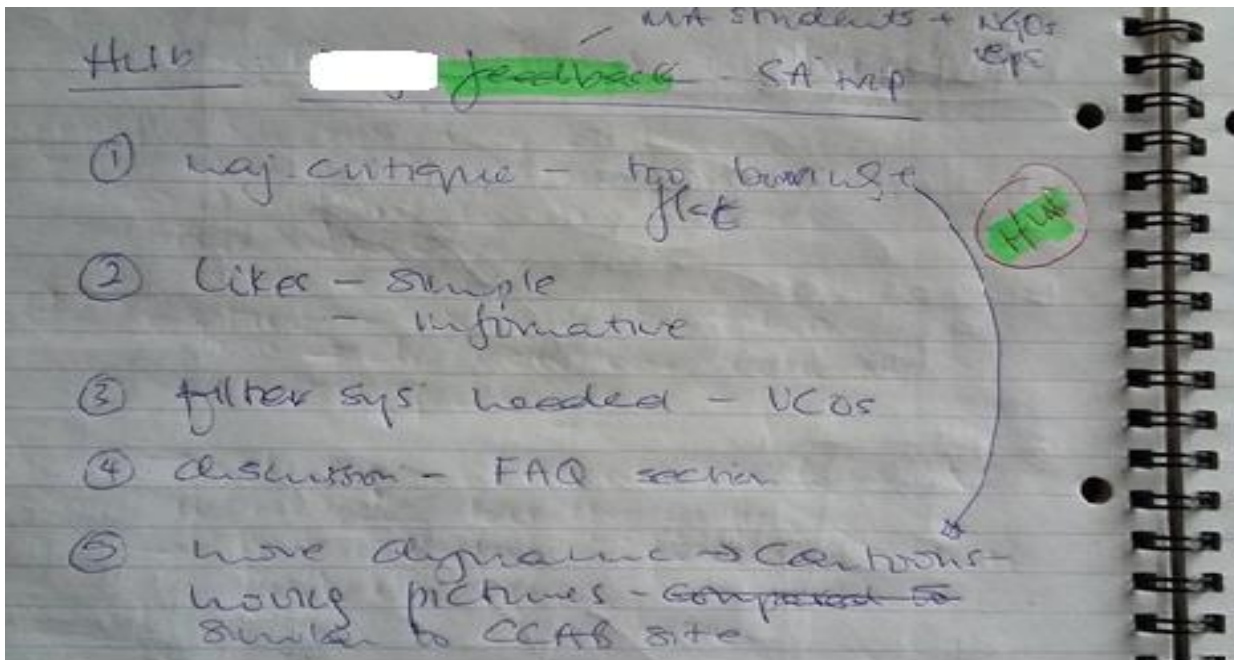 MA students + NGOs
reps
Hub feedback - SA trip
① maj. critique - too boring &
flat
Hub
② Likes - simple
- informative
③ filter sys needed - VCOs
④ discussion - FAQ section
⑤ more dynamic → Cartoons -
moving pictures - compared to
similar to CCAB site